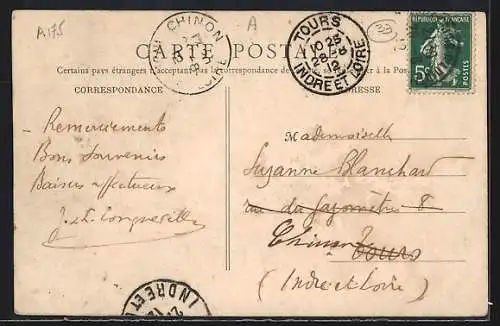 A175
A
CHINON
TOURS
10 25
28-8
INDRE ET LOIRE
REPUBLIQUE FRANÇAISE
5c
POSTES
CARTE POSTALE
Certains pays étrangers n'acceptant pas la correspondance de
à la Poste
CORRESPONDANCE
ADRESSE
Remerciements
Bons Souvenirs
Baisers affectueux
Mademoiselle
Suzanne Blanchard
rue du Gazomètre 8
Chinon
Tours
(Indre et Loire)
INDRE ET